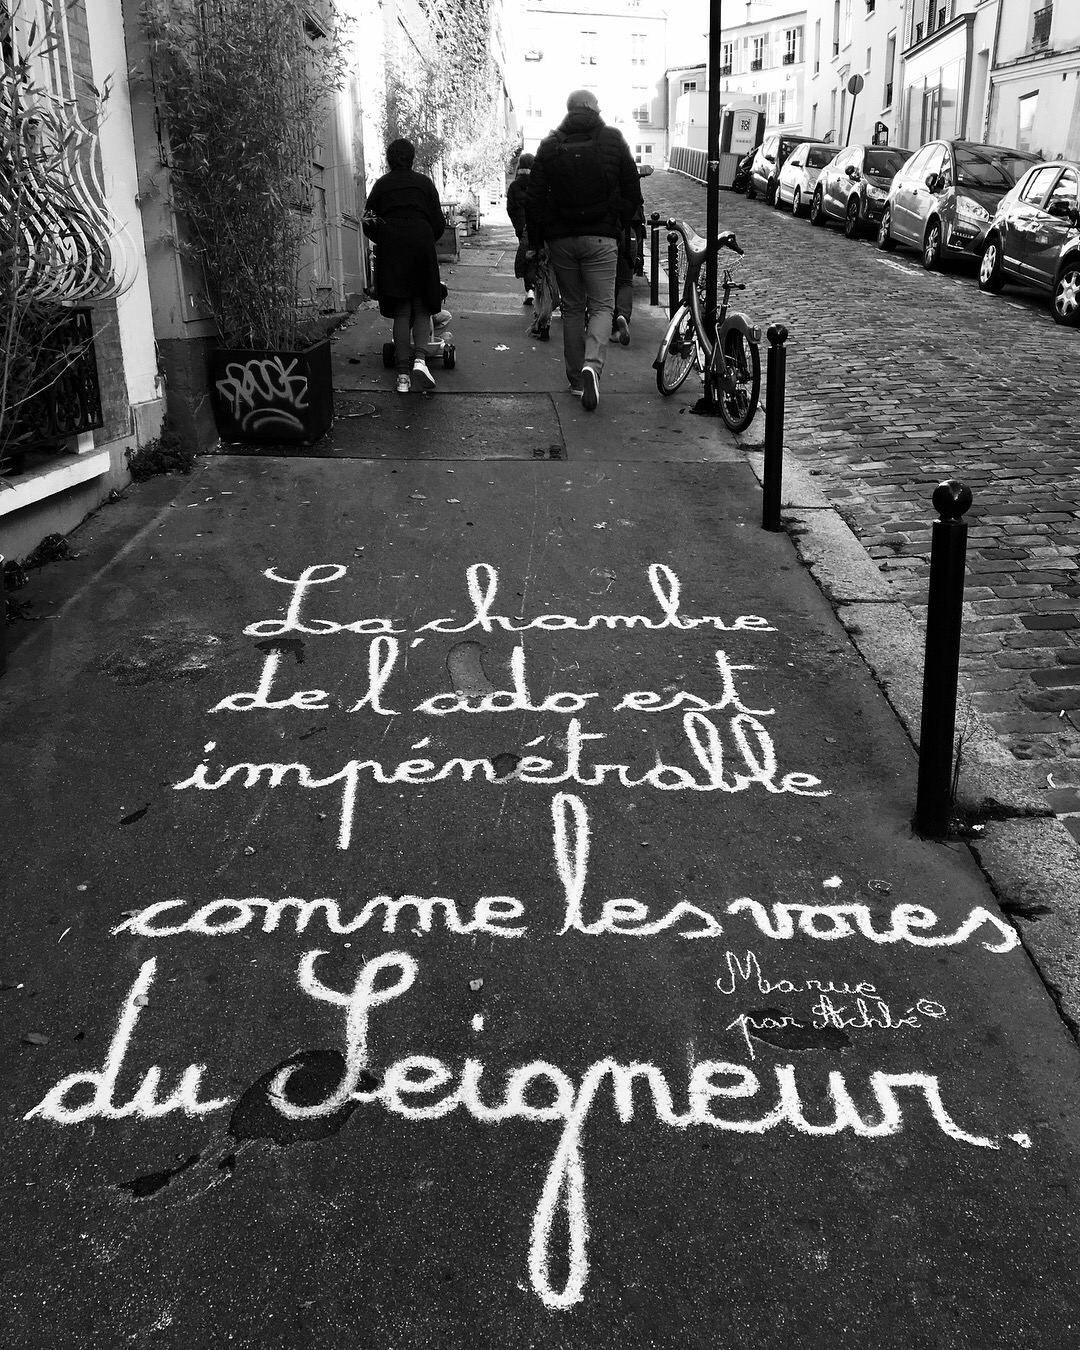 TOI
TOI
DROCK
La chambre
de l'ado est
impénétrable
comme les voies
du Seigneur.
Marue
par Achbé©